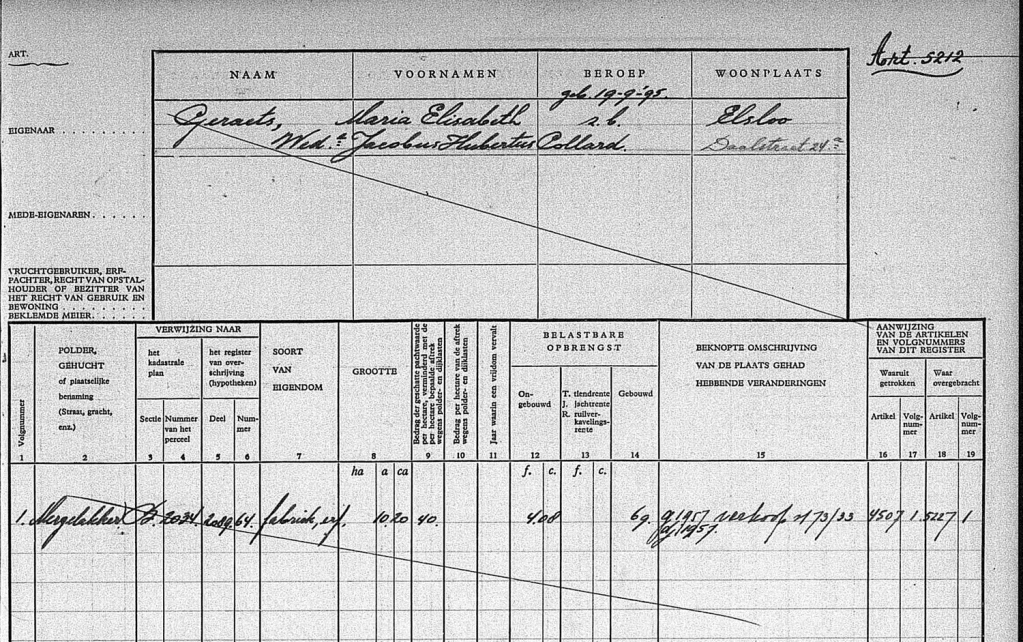 ART.
Art. 5212
NAAM VOORNAMEN BEROEP WOONPLAATS
geb. 19-9-'95.
EIGENAAR . . . . . . . . . . Geraets, Maria Elisabeth z.b. Elsloo
Wed.e Jacobus Hubertus Collard. Daalstraat 24.a
MEDE-EIGENAREN . . . . . .
VRUCHTGEBRUIKER, ERF-
PACHTER, RECHT VAN OPSTAL-
HOUDER OF BEZITTER VAN
HET RECHT VAN GEBRUIK EN
BEWONING . . . . . . . . .
BEKLEMDE MEIER . . . . . .
Volgnummer
1
POLDER,
GEHUCHT
of plaatselijke
benaming
(Straat, gracht,
enz.)
2
VERWIJZING NAAR
het
kadastrale
plan
Sectie
3
Nummer
van het
perceel
4
het register
van over-
schrijving
(hypotheken)
Deel
5
Num-
mer
6
SOORT
VAN
EIGENDOM
7
GROOTTE
8
ha a ca
Bedrag der geschatte pachtwaarde
per hectare, verminderd met de
per hectare bepaalde aftrek
wegens polder- en dijklasten
9
Bedrag per hectare van de aftrek
wegens polder- en dijklasten
10
Jaar waarin een vrijdom vervalt
11
BELASTBARE
OPBRENGST
On-
gebouwd
12
f. c.
T. tiendrente
J. Jachtrente
R. ruilver-
kavelings-
rente
13
f. c.
Gebouwd
14
BEKNOPTE OMSCHRIJVING
VAN DE PLAATS GEHAD
HEBBENDE VERANDERINGEN
15
AANWIJZING
VAN DE ARTIKELEN
EN VOLGNUMMERS
VAN DIT REGISTER
Waaruit
getrokken
Artikel
16
Volg-
num-
mer
17
Waar
overgebracht
Artikel
18
Volg-
num-
mer
19
1. Mergelakker B. 2034. 2089. 64. fabriek, erf. 10.20 40. 4.08 69. 1957 verkoop 73/33 4507 1. 5227 1
1957.